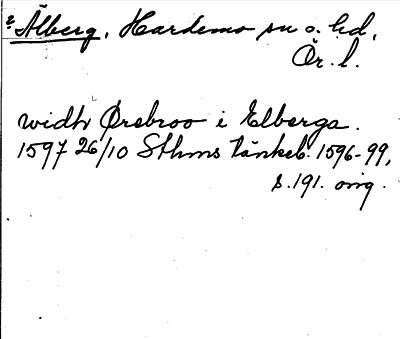 ? Ålberg, Hardemo sn o. hd,
Ör. l.
widh Örebroo i Elberga.
1597 26/10 Sthms tänkeb. 1596-99,
s. 191. orig.